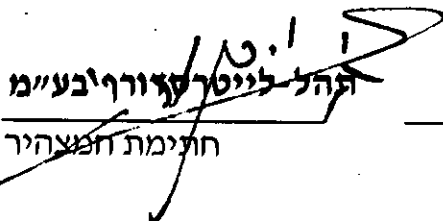 תהל לייטרסדורף בע״מ
חתימת המצהיר